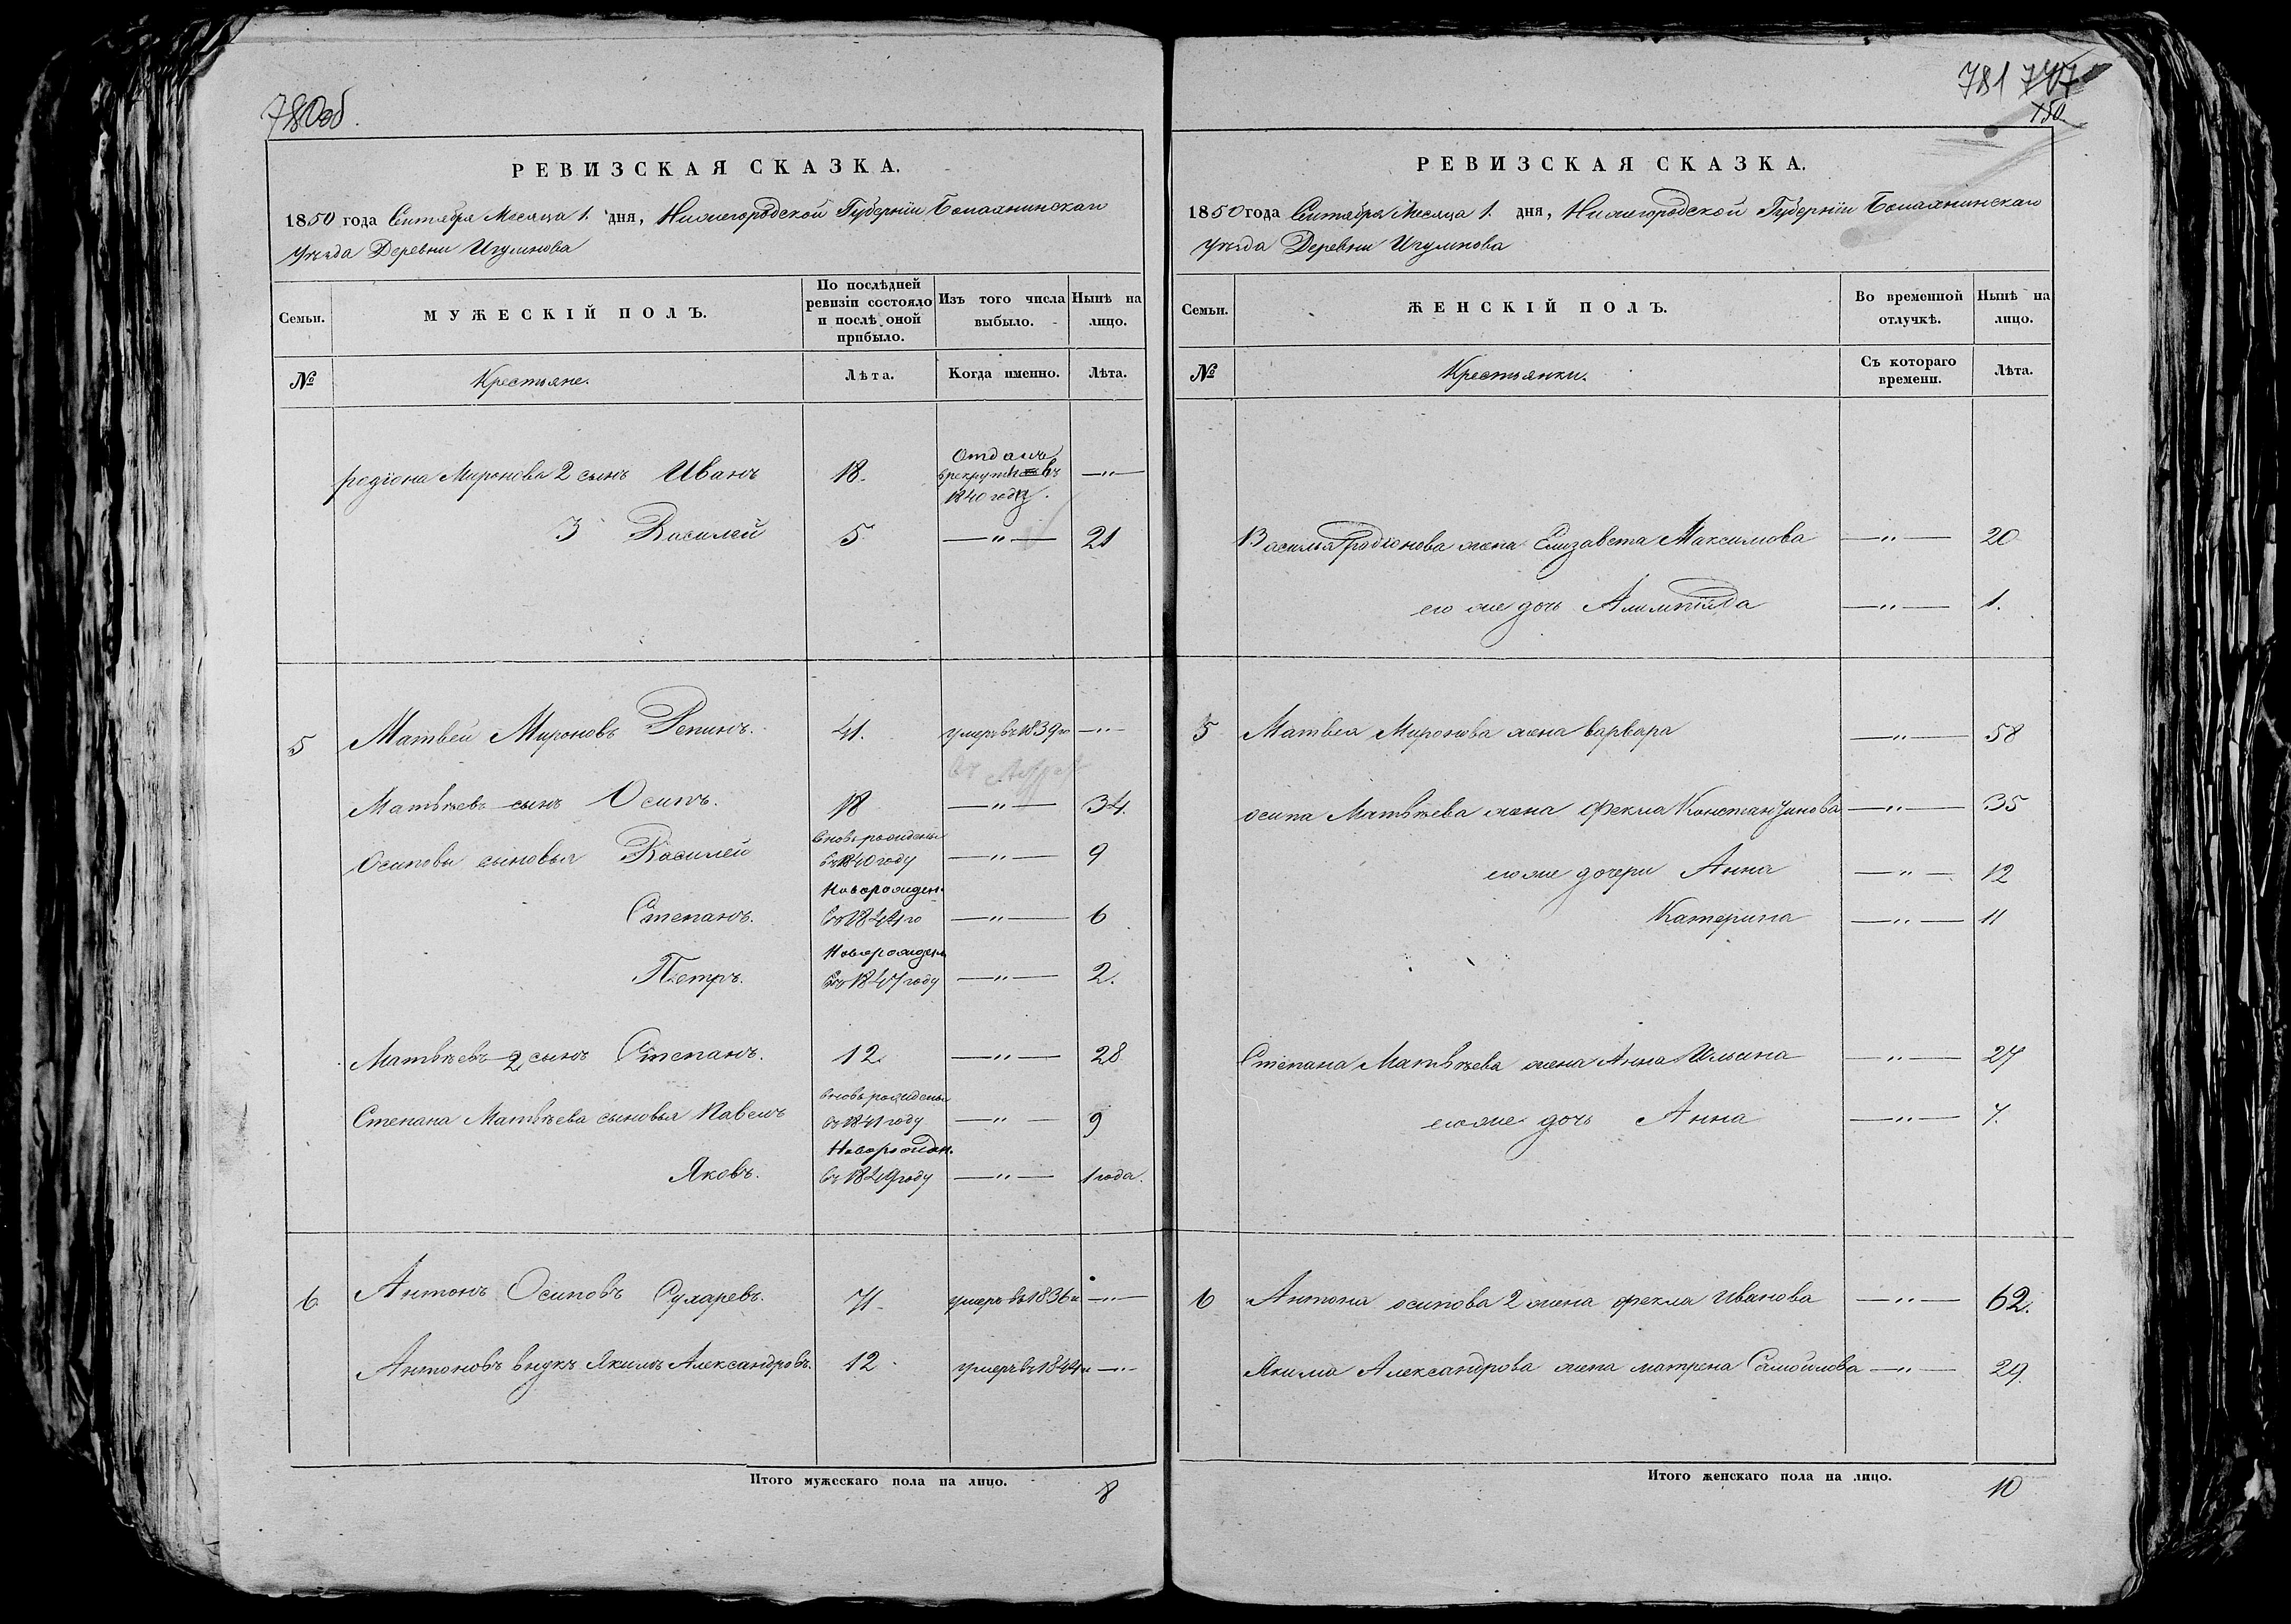 780об.
РЕВИЗСКАЯ СКАЗКА.
1850 года Сентября Месяца 1. дня, Нижегородской Губернiи Балахнинскаго
Уѣзда Деревни Игумнова
Семьи. МУЖЕСКIЙ ПОЛЪ. По послѣдней ревизiи состояло и послѣ оной прибыло. Изъ того числа выбыло. Нынѣ на лицо.
№ Крестьяне. Лѣта. Когда именно. Лѣта.
родiона Миронова 2 сынъ Иванъ 18. Отданъ в рекруты въ 1840 году. —"—
3 Василей 5 —"— 21
5 Матвей Мироновъ Репинъ. 41. умеръ въ 1839го —"—
Матвѣевъ сынъ Осипъ. 18 —"— 34.
Осиповы сыновья Василей вновьрожденъ въ 1840 году —"— 9
Степанъ. Новорожден. въ 1844го —"— 6
Петръ. Новорожден въ 1847 году —"— 2.
Матвѣевъ 2 сынъ Степанъ. 12. —"— 28
Степана Матвѣева сыновья Павелъ вновьрожденъ въ 1841 году —"— 9
Яковъ. Новорожден. въ 1849 году —"— 1 года.
6 Антонъ Осиповъ Сухаревъ. 71. умеръ въ 1836го —"—
Антоновъ внукъ Якимъ Александровъ. 12 умеръ въ 1844го —"—
Итого мужескаго пола на лицо. 8
781 747
150
РЕВИЗСКАЯ СКАЗКА.
1850 года Сентября Месяца 1. дня, Нижегородской Губернiи Балахнинскаго
Уѣзда Деревни Игумнова
Семьи. ЖЕНСКIЙ ПОЛЪ. Во временной отлучкѣ. Нынѣ на лицо.
№ Крестьянки. Съ котораго времени. Лѣта.
Василья родiонова жена Елизавета Максимова —"— 20
его же дочь Алимпiяда —"— 1.
5 Матвея Миронова жена варвара —"— 58
осипа Матвѣева жена Фекла Константинова —"— 35
его же дочери Анна —"— 12
Катерина —"— 11
Степана Матвѣева жена Анна Ильина —"— 27
его же дочь Анна —"— 7.
6 Антона осипова 2 жена фекла Иванова —"— 62.
Якима Александрова жена матрена Самойлова —"— 29.
Итого женскаго пола на лицо. 10